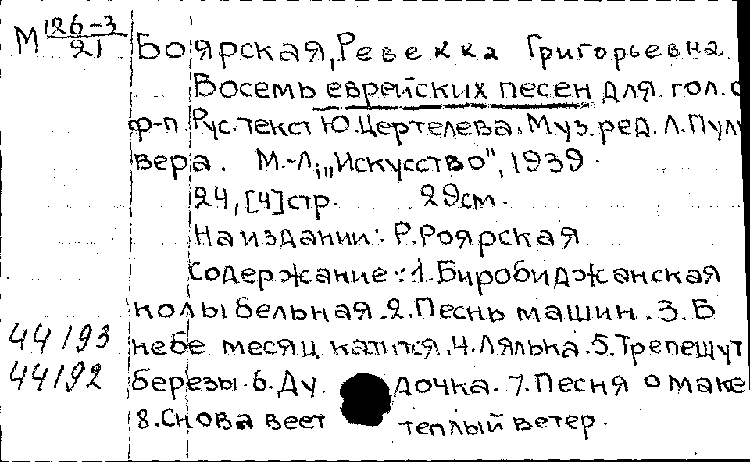 М 126-3
21
Боярская, Ревекка Григорьевна
Восемь еврейских песен для гол. с
ф-п. Рус. текст Ю. Цертелева. Муз. ред. Л. Пуль
вера. М.-Л., "Искусство", 1939.
24, [4] стр. 29 см.
На издании: Р. Роярская
Содержание: 1. Биробиджанская
колыбельная. 2. Песнь машин. 3. В
44193 небе месяц катится. 4. Лялька. 5. Трепещут
44192 березы. 6. Ду дочка. 7. Песня о маке
8. Снова веет теплый ветер.